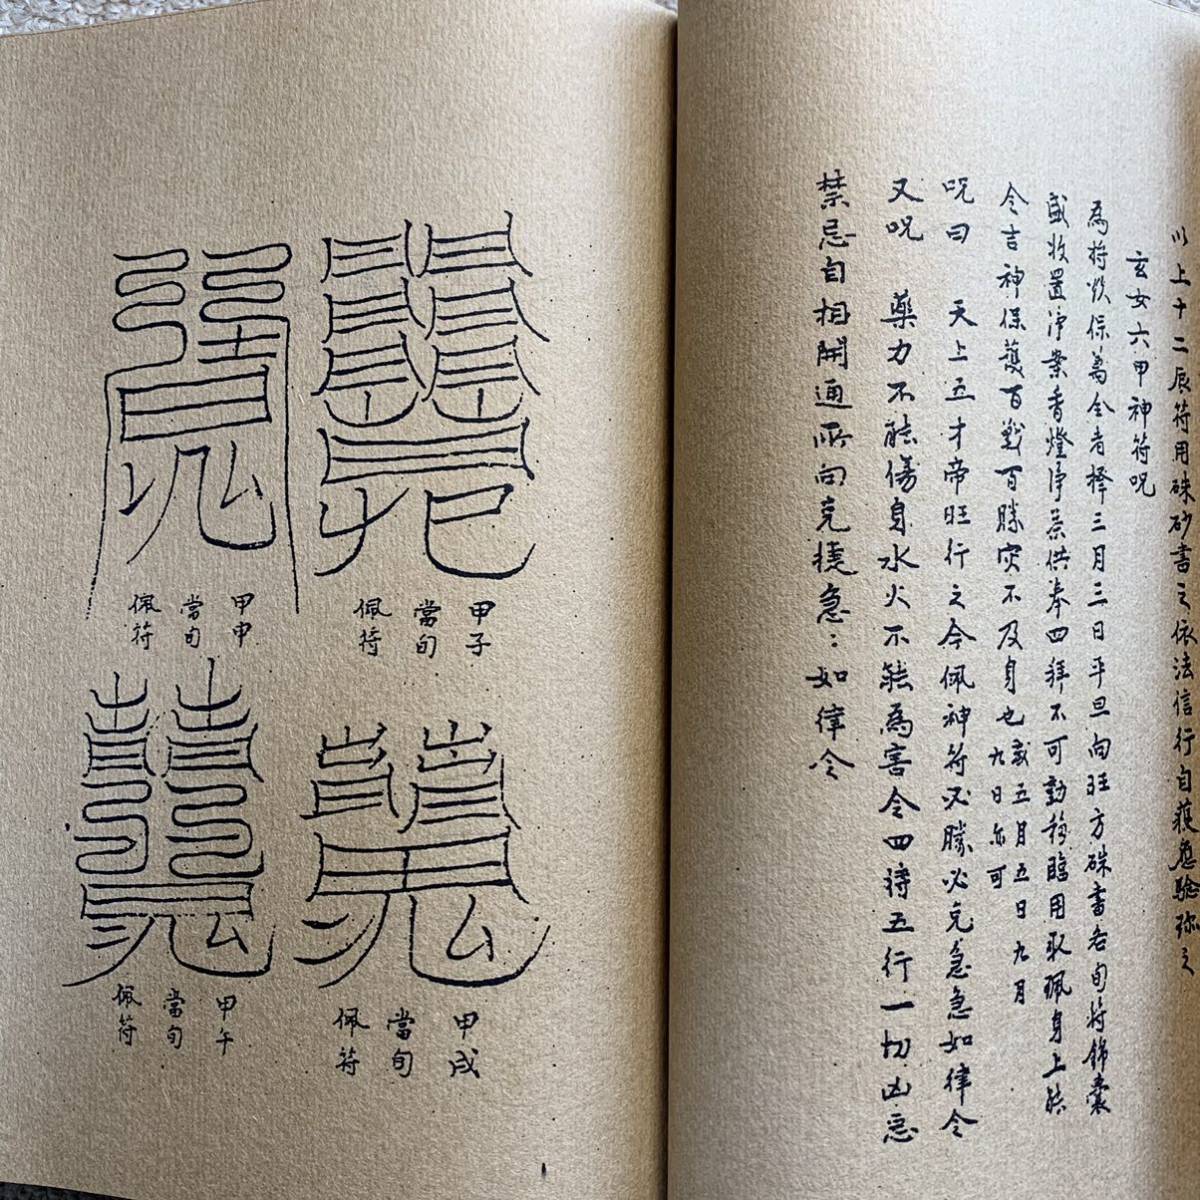 以上十二辰符用硃砂書之依法信行自獲應驗珎之
玄女六甲神符呪
為将欲保萬全者擇三月三日平旦向旺方硃書各旬符錦囊
盛收置淨案香燈淨茶供奉四拜不可動移臨用取珮身上能
令吉神保護百戰百勝灾不及身也或五月五日九月
九日亦可
呪曰 天上五才帝旺行之令佩神符必勝必克急急如律令
又呪 藥力不能傷身水火不能為害令四時五行一切凶惡
禁忌自相開通所向克捷急〻如律令
甲子
當旬
佩符
甲申
當旬
佩符
甲戌
當旬
佩符
甲午
當旬
佩符